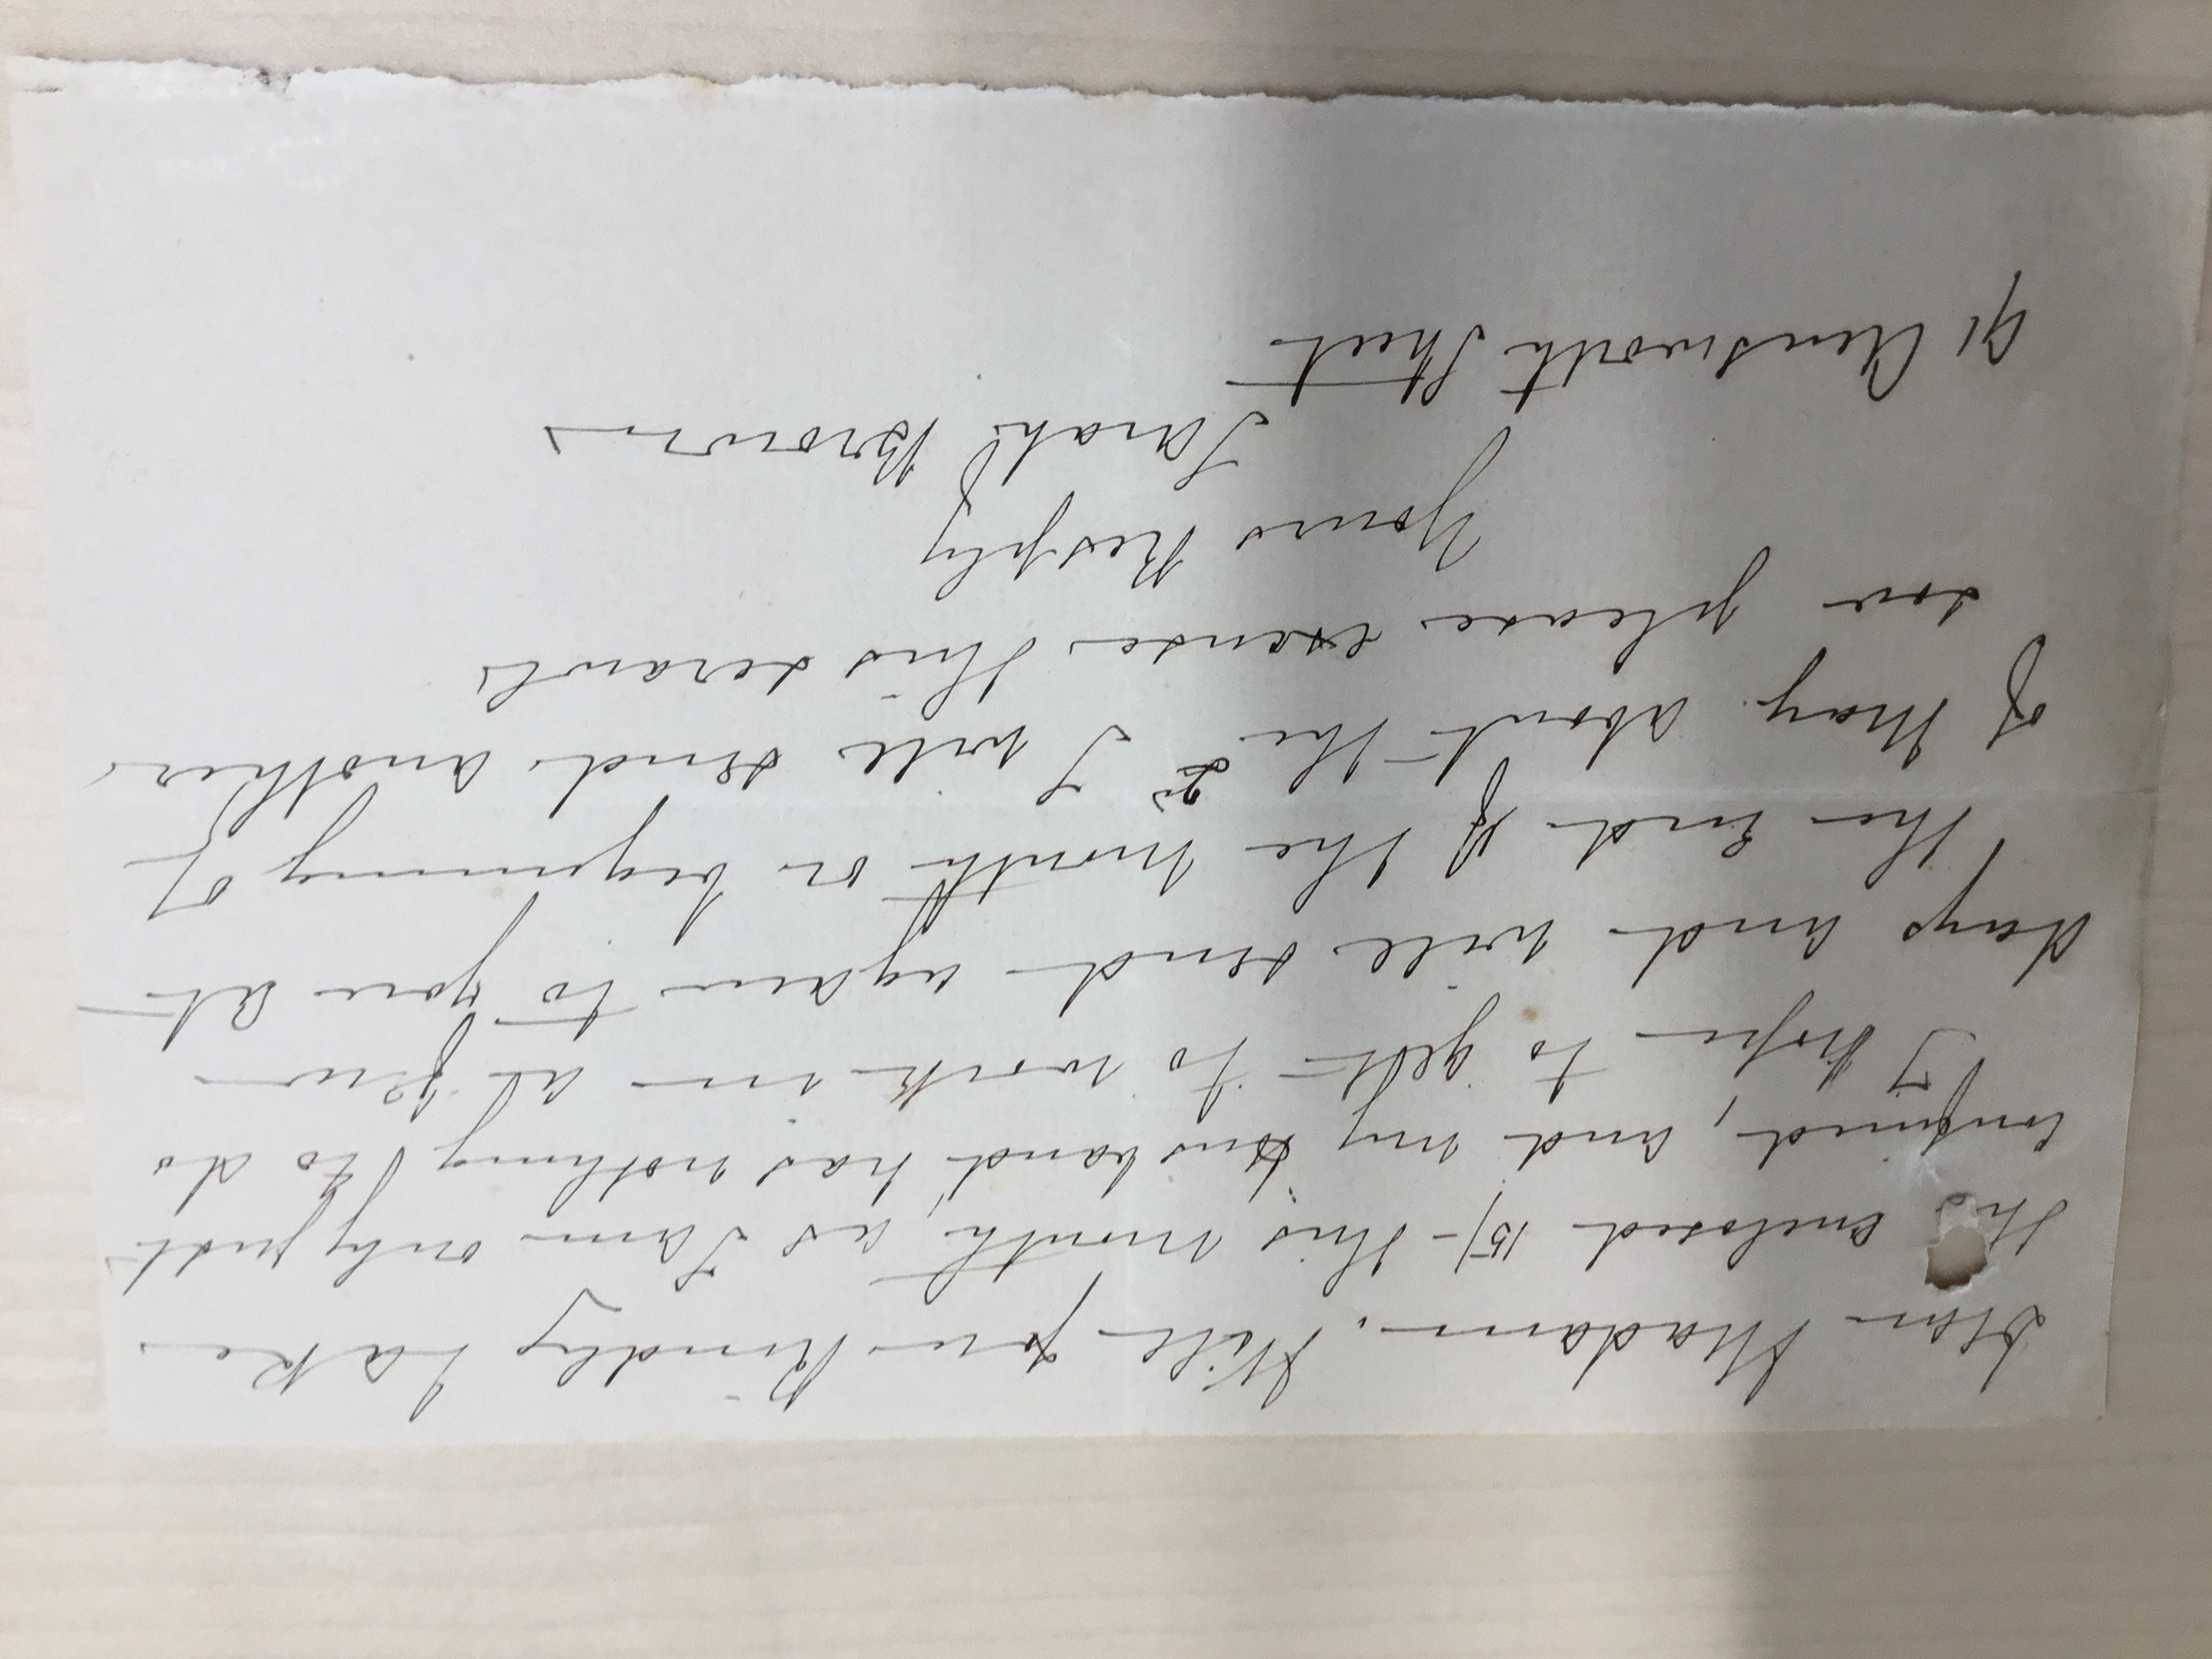 Dear Madam. Will you Kindly take
the enclosed 15/- this month, as I am only just
confined, and my husband has nothing to do
I hope to get to work in a few
days and will send again to you at
the End of the month or begenning of
of May. about the 2 I will send another
sov please excuse this scrawl
Yours Respfly
Sarah Brown
91 Ainsworth Street